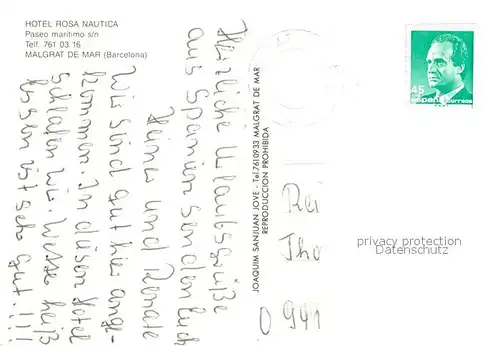 HOTEL ROSA NAUTICA
Paseo marítimo s/n
Telf. 761 03 16
MALGRAT DE MAR (Barcelona)
Herzliche Urlaubsgrüße
aus Spanien senden Euch
Heino und Renate
Wir sind gut hier ange-
kommen. In diesen Hotel
schlafen wir. Wetter heiß
Essen ist sehr gut.!!!!
JOAQUIM SANJUAN JOVE - Tel. 7610933 MALGRAT DE MAR
REPRODUCCION PROHIBIDA
45
España correos
Rei
Tho
O 941
privacy protection
Datenschutz